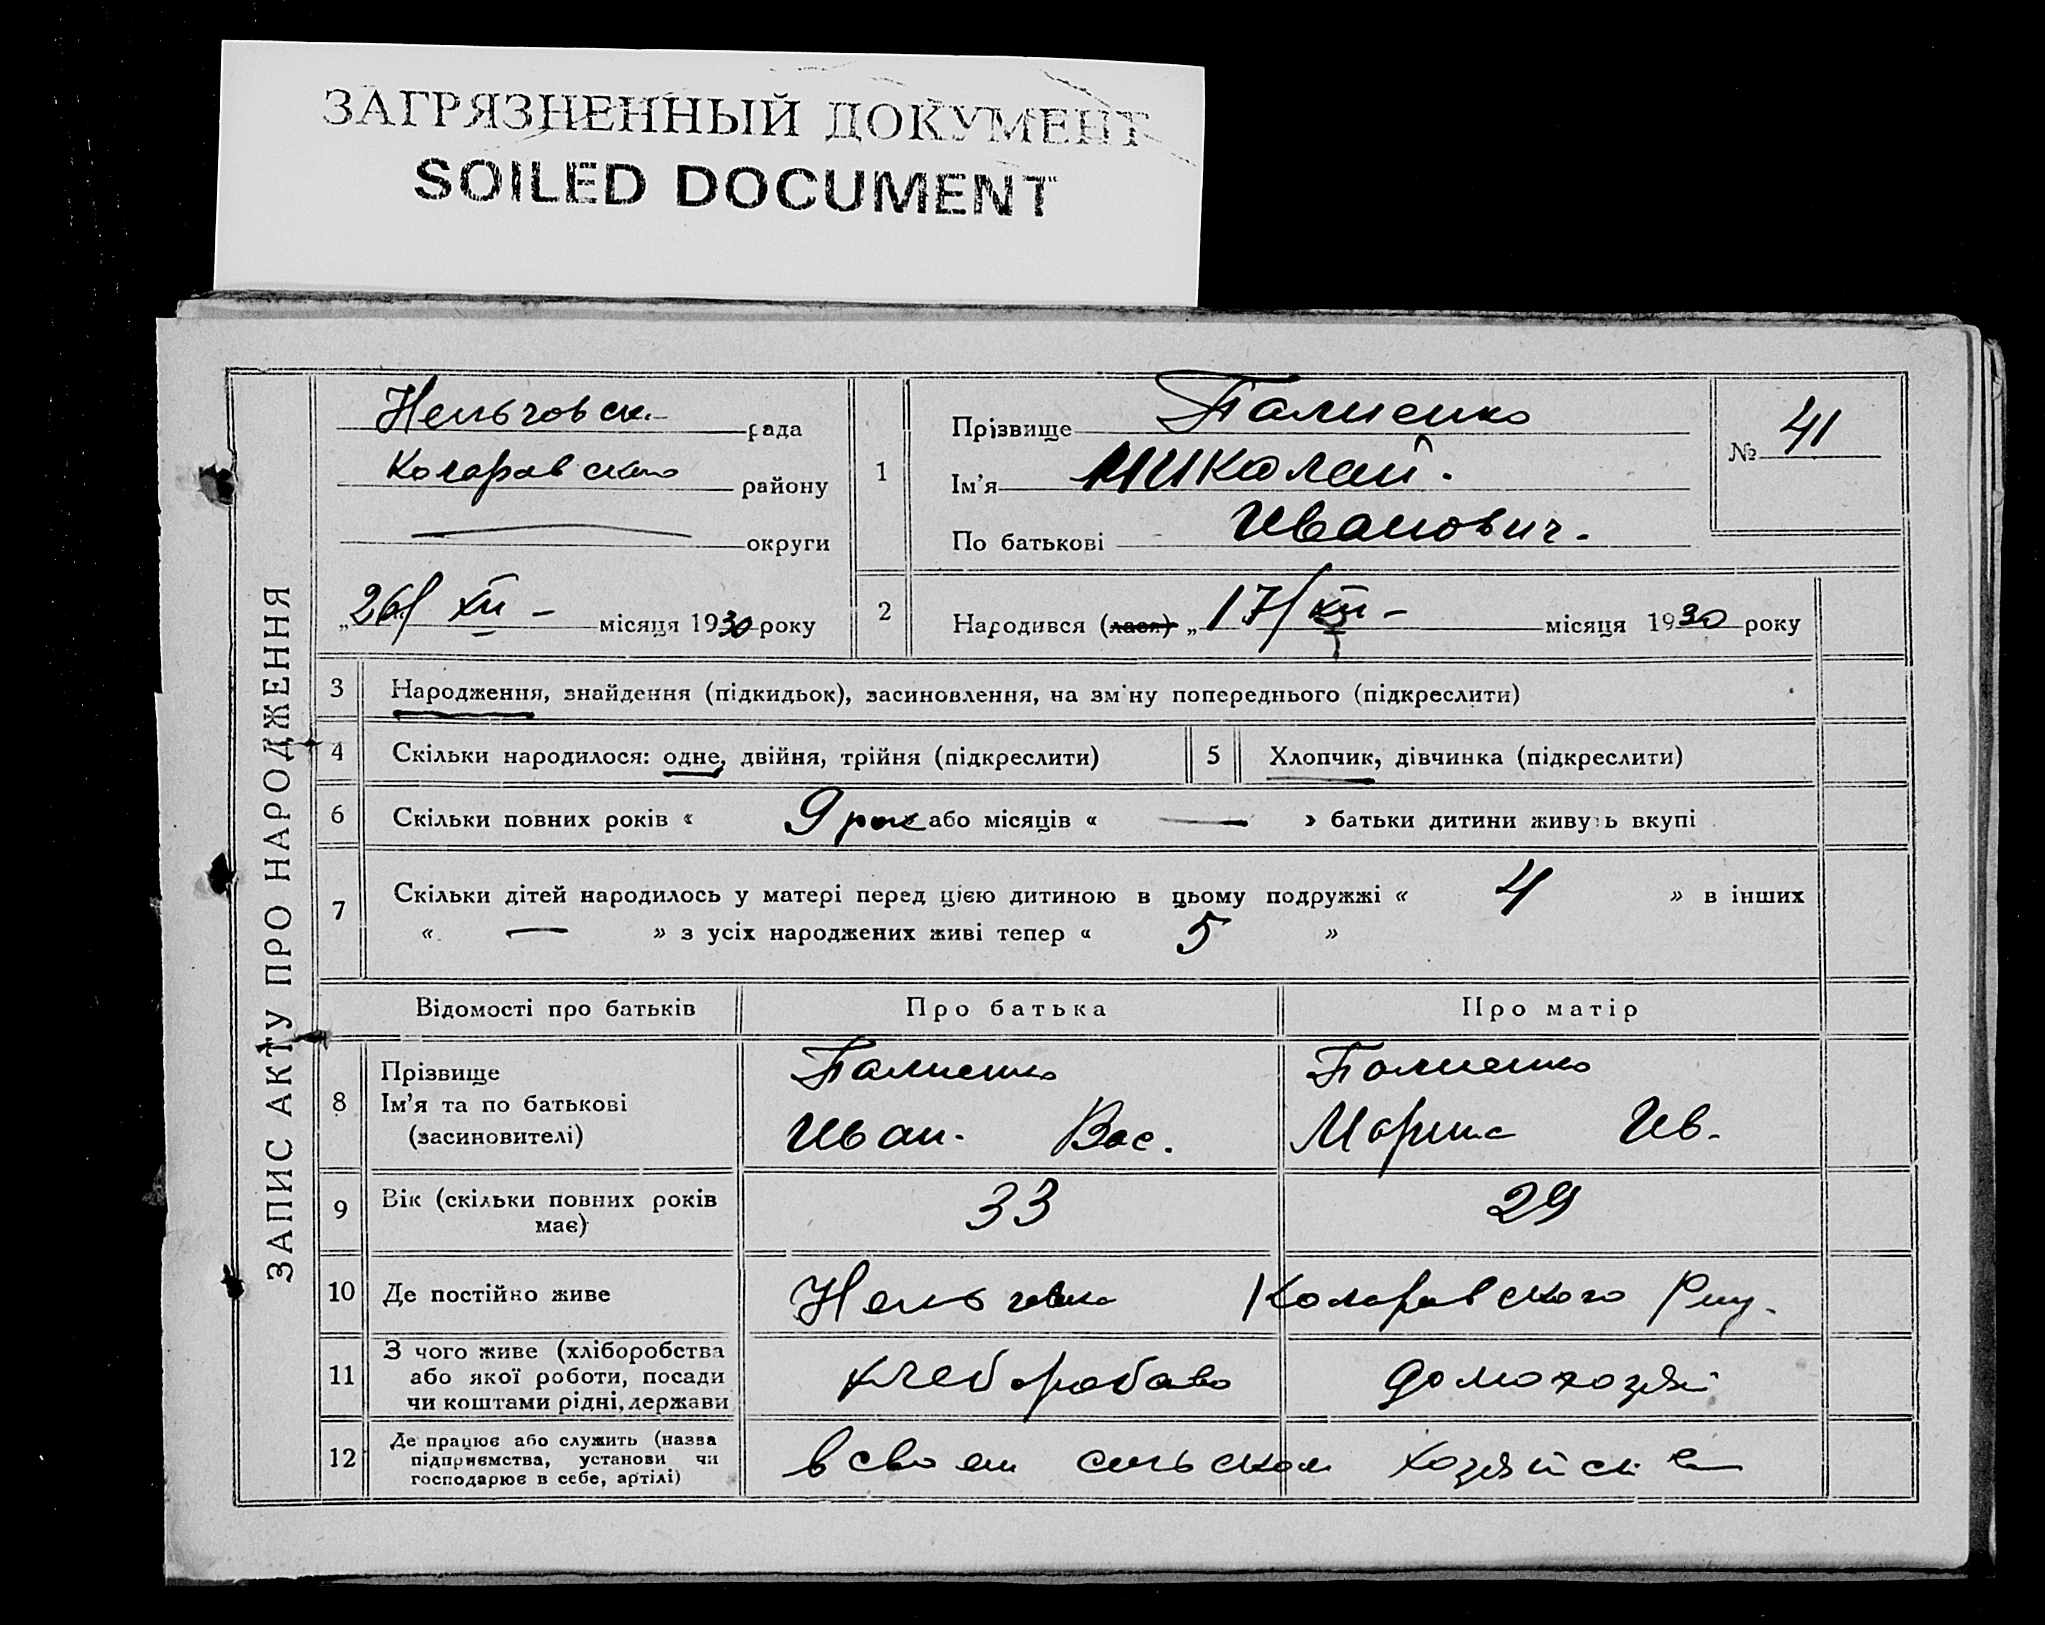 ЗАГРЯЗНЕННЫЙ ДОКУМЕНТ
SOILED DOCUMENT
ЗАПИС АКТУ ПРО НАРОДЖЕННЯ
Нельговск. рада
Коларовского району
округи
„26/ XII - місяця 1930 року
1
Прізвище Палиенко
Ім'я Николай.
По батькові Иванович.
№ 41
2 Народився (лася) „17/XII - місяця 1930 року
3 Народження, знайдення (підкидьок), засиновлення, на зміну попереднього (підкреслити)
4 Скільки народилося: одне, двійня, трійня (підкреслити) 5 Хлопчик, дівчинка (підкреслити)
6 Скільки повних років « 9 рок або місяців « — » батьки дитини живуть вкупі
7 Скільки дітей народилось у матері перед цією дитиною в цьому подружжі « 4 » в інших
« — » з усіх народжених живі тепер « 5 »
Відомості про батьків Про батька Про матір
8 Прізвище Палиенко Палиенко
Ім'я та по батькові
(засиновителі) Иван. Вас. Марина Ив.
9 Вік (скільки повних років
має) 33 29
10 Де постійно живе Нельговка Коларовского
11 З чого живе (хліборобства
або якої роботи, посади
чи коштами рідні, держави хлеборобство домохозяй
12 Де працює або служить (назва
підприємства, установи чи
господарює в себе, артілі) в своем сельском